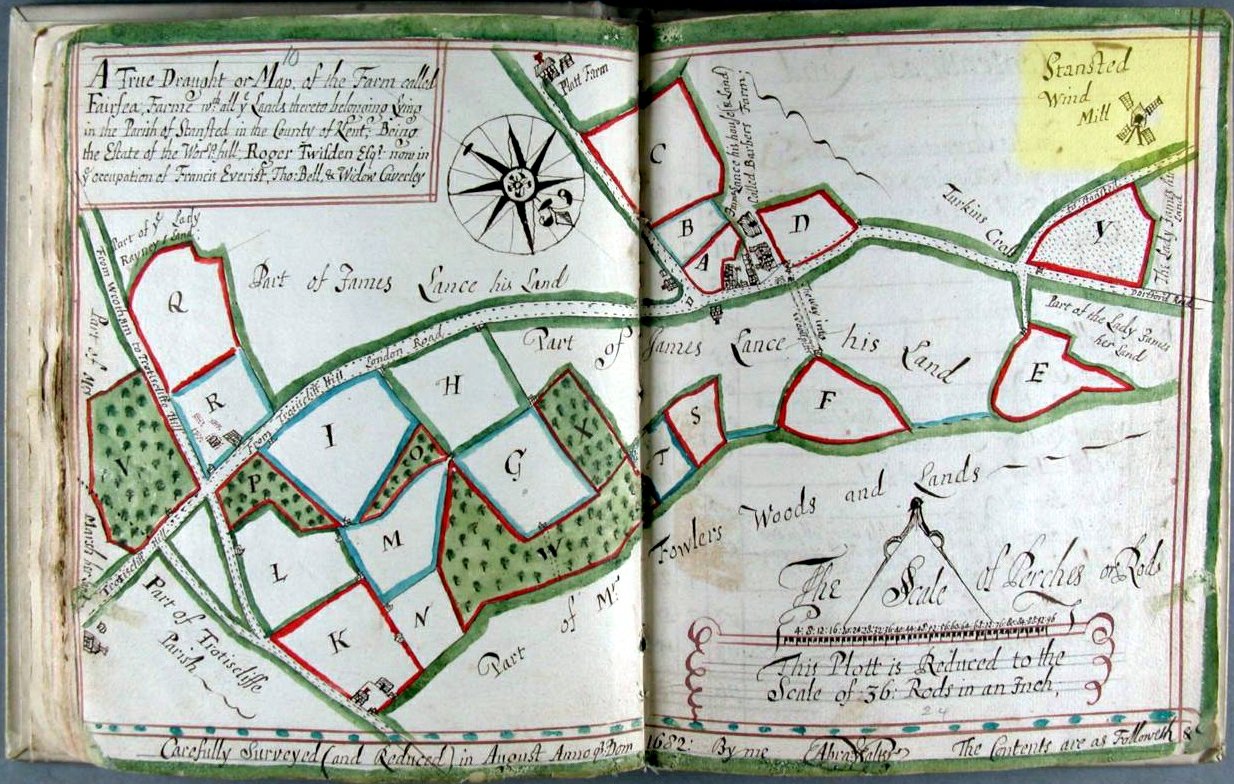 10
A True Draught or Map, of the Farm called
Fairsea, Farme wth all ye Lands thereto belonging Lying
in the Parish of Stansted in the County of Kent; Being
the Estate of the Worp.full Roger Twisden Esqr now in
ye occupation of Francis Everist, Tho: Bell, & Widow Caverley
Platt Farm
Stansted
Wind
Mill
James Lance his house & Land
Called Barbers Farm,
C
B
A
D
Turkins
to Stansted
Y
The Lady James his
Land
Dartford Road
Part of the Lady James
her Land
E
Part of ye Lady
Rayney's Land
From Wrotham to Trotiscliffe Hill
Part of Mr
Marsh his
Q
Part of James Lance his Land
Part of James Lance his Land
From Trotiscliff Hill London Road
R
V
H
I
X
O
P
G
S
T
F
M
W
L
N
K
Trotiscliff Hill
Part of Trotiscliffe
Parish
Part of Mr.
Fowlers Woods and Lands
The Scale of Perches or Rods
This Plott is Reduced to the
Scale of 36: Rods in an Inch.
24
Carefully Surveyed (and Reduced) in August Anno q Dom 1682: By me Abra Walter The Contents are as Followeth &c